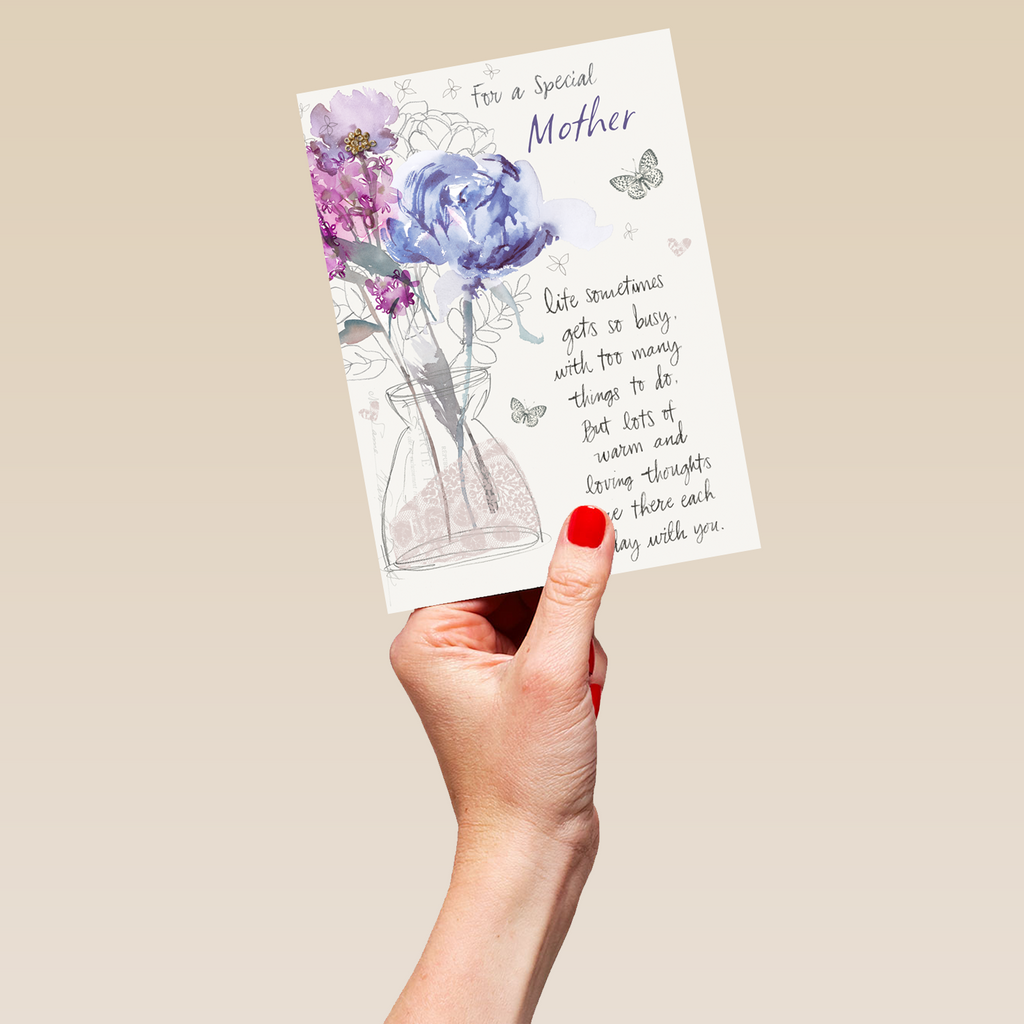 For a Special
Mother
life sometimes
gets so busy,
with too many
things to do.
But lots of
warm and
loving thoughts
there each
with you.